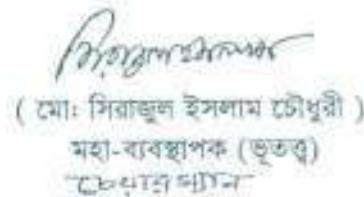 ( মোঃ সিরাজুল ইসলাম চৌধুরী )
মহা-ব্যবস্থাপক (ভূতত্ত্ব)
চেয়ারম্যান